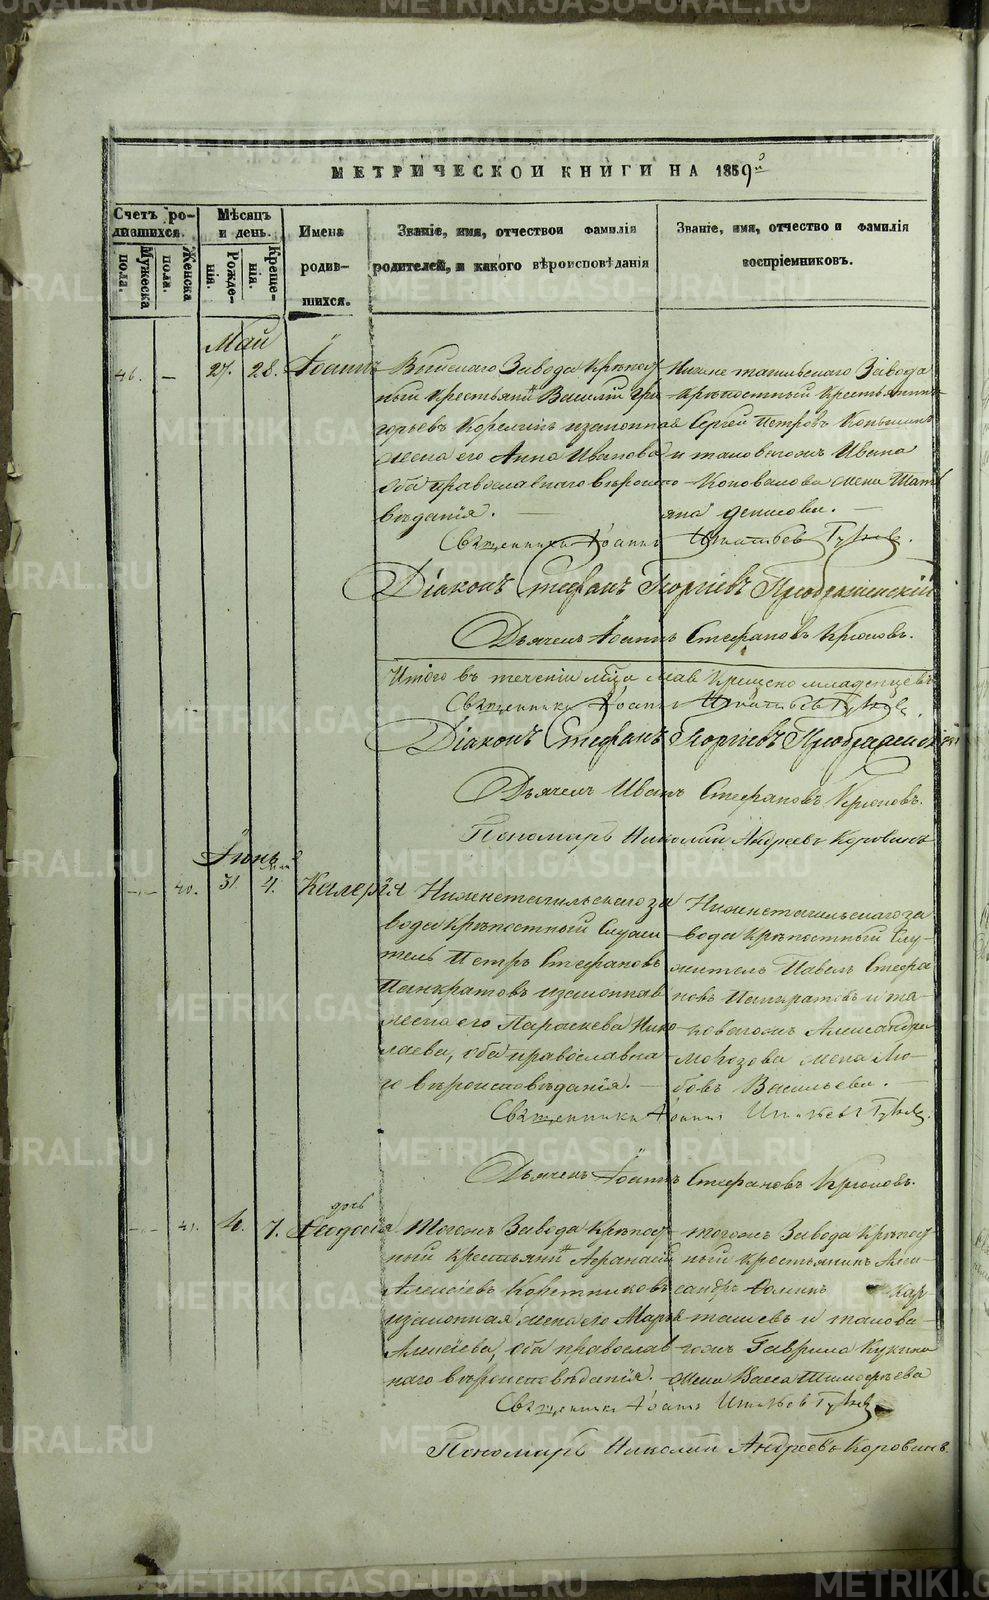 МЕТРИЧЕСКОЙ КНИГИ НА 1859й
Счетъ ро-
дившихся.
Мужеска
пола.
Женска
пола.
Мѣсяцъ
и день.
Рожде-
нія.
Креще-
нія.
Имена
родив-
шихся.
Званіе, имя, отчествои фамилія
родителей, и какого вѣроисповѣданія
Званіе, имя, отчество и фамилія
воспріемниковъ.
Май
46. — 27. 28. Іоаннъ
Выйскаго Завода Крѣпост
ный крестьянинъ Василій Гри
горьевъ Корелинъ изаконная
жена его Анна Иванова
оба православнаго вѣроиспо
вѣданія. —
Нижне тагильскаго Завода
крѣпостный Крестьянинъ
Сергей Петровъ Копышинъ
и тавожъ Ивана
Коновалова жена Тать
яна денисова. —
Священникъ Іоаннъ Игнатьевъ
Діаконъ Стефанъ Георгіевъ Преображенскій
Дьячекъ Іоаннъ Стефановъ Крюковъ.
Итого въ теченіи Мца мая Крещено младенцевъ
Священникъ Іоаннъ Игнатьевъ
Діаконъ Стефанъ Георгіевъ Преображенскій
Дьячекъ Иванъ Стефановъ Крюковъ.
Пономарь Николай Андреевъ Коровинъ
Іюнь
— 40. 31. 4. Калерія
Нижнетагильскаго за
вода Крѣпостный Служи
тель Петръ Стефановъ
Панкратовъ изаконная
жена его Параскева Нико
лаева, оба православна
го вѣроисповѣданія. —
Нижнетагильскаго за
вода Крѣпостный Слу-
житель Павелъ Стефа
новъ Панкратовъ и та-
ковагожъ Александра
Морозова жена Лю-
бовь Васильева. —
Священникъ Іоаннъ Игнатьевъ
Дьячекъ Іоаннъ Стефановъ Крюковъ.
дочь
— 41. 4. 7. Феодосія
Тогожъ Завода Крѣпост
ный крестьянинъ Афанасій
Алексѣевъ Коретниковъ
изаконная жена его Марья
Алексѣева, оба православ
наго вѣроисповѣданія. —
тогожъ Завода Крѣпост
ный Крестьянинъ Але
ксандръ Фоминъ Кар
ташевъ и такова-
гожъ Гаврила Кукина
жена Васса Тимофѣева
Священникъ Іоаннъ Игнатьевъ
Пономарь Николай Андреевъ Коровинъ.
METRIKI.GASO-URAL.RU